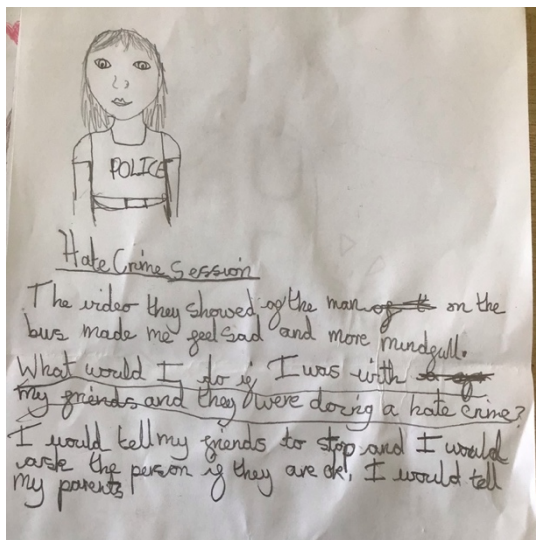 POLICE
Hate Crime Session
The video they showed of the man on the
bus made me feel sad and more mindfull.
What would I do if I was with
my friends and they were doing a hate crime?
I would tell my friends to stop and I would
ask the person if they are ok! I would tell
my parents